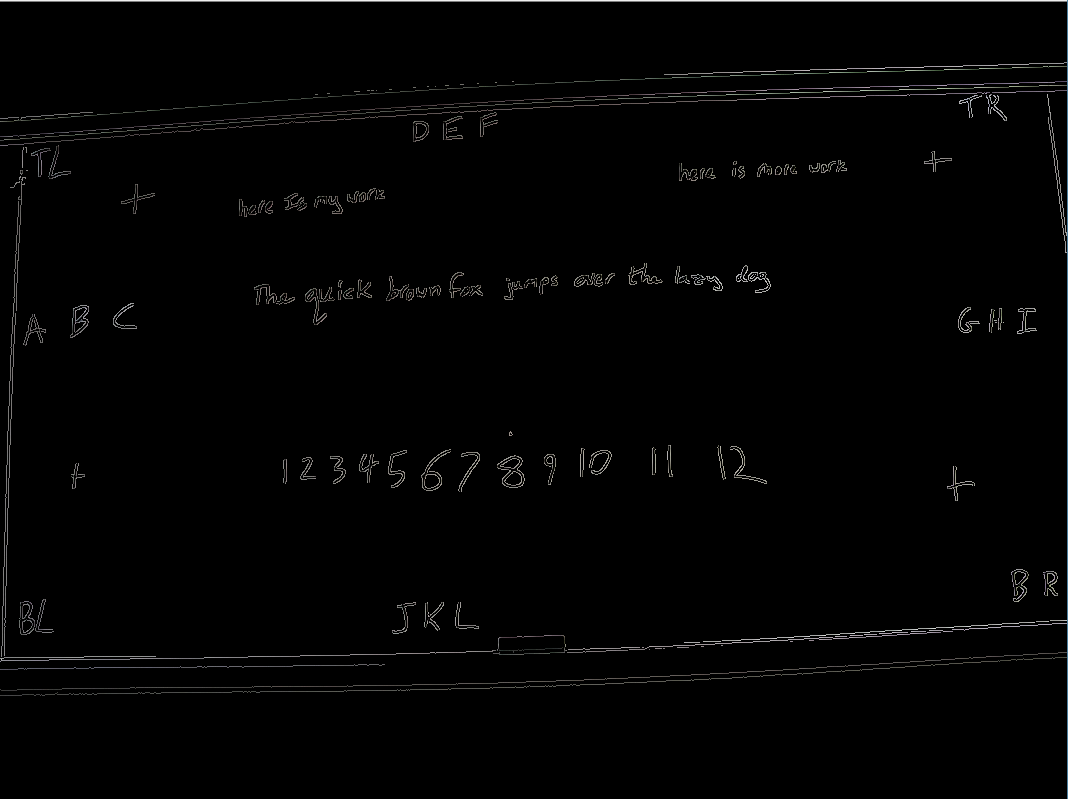 TR
D E F
TL
here is more work
here Is my work
The quick brown fox jumps over the lazy dog
A B C
G H I
1 2 3 4 5 6 7 8 9 10 11 12
B R
BL
J K L